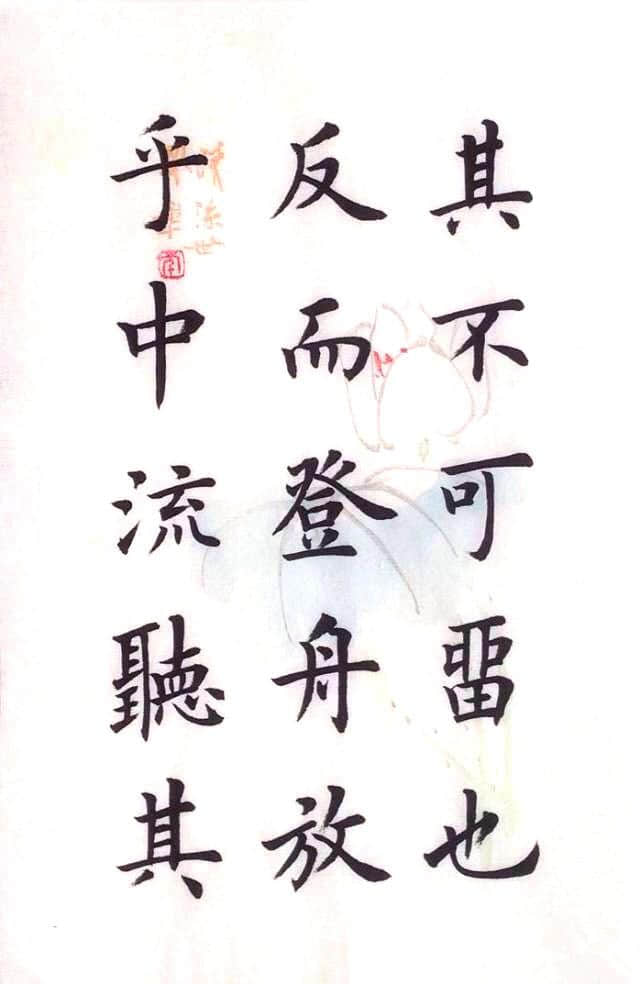 其不可畱也
反而登舟放
乎中流聽其